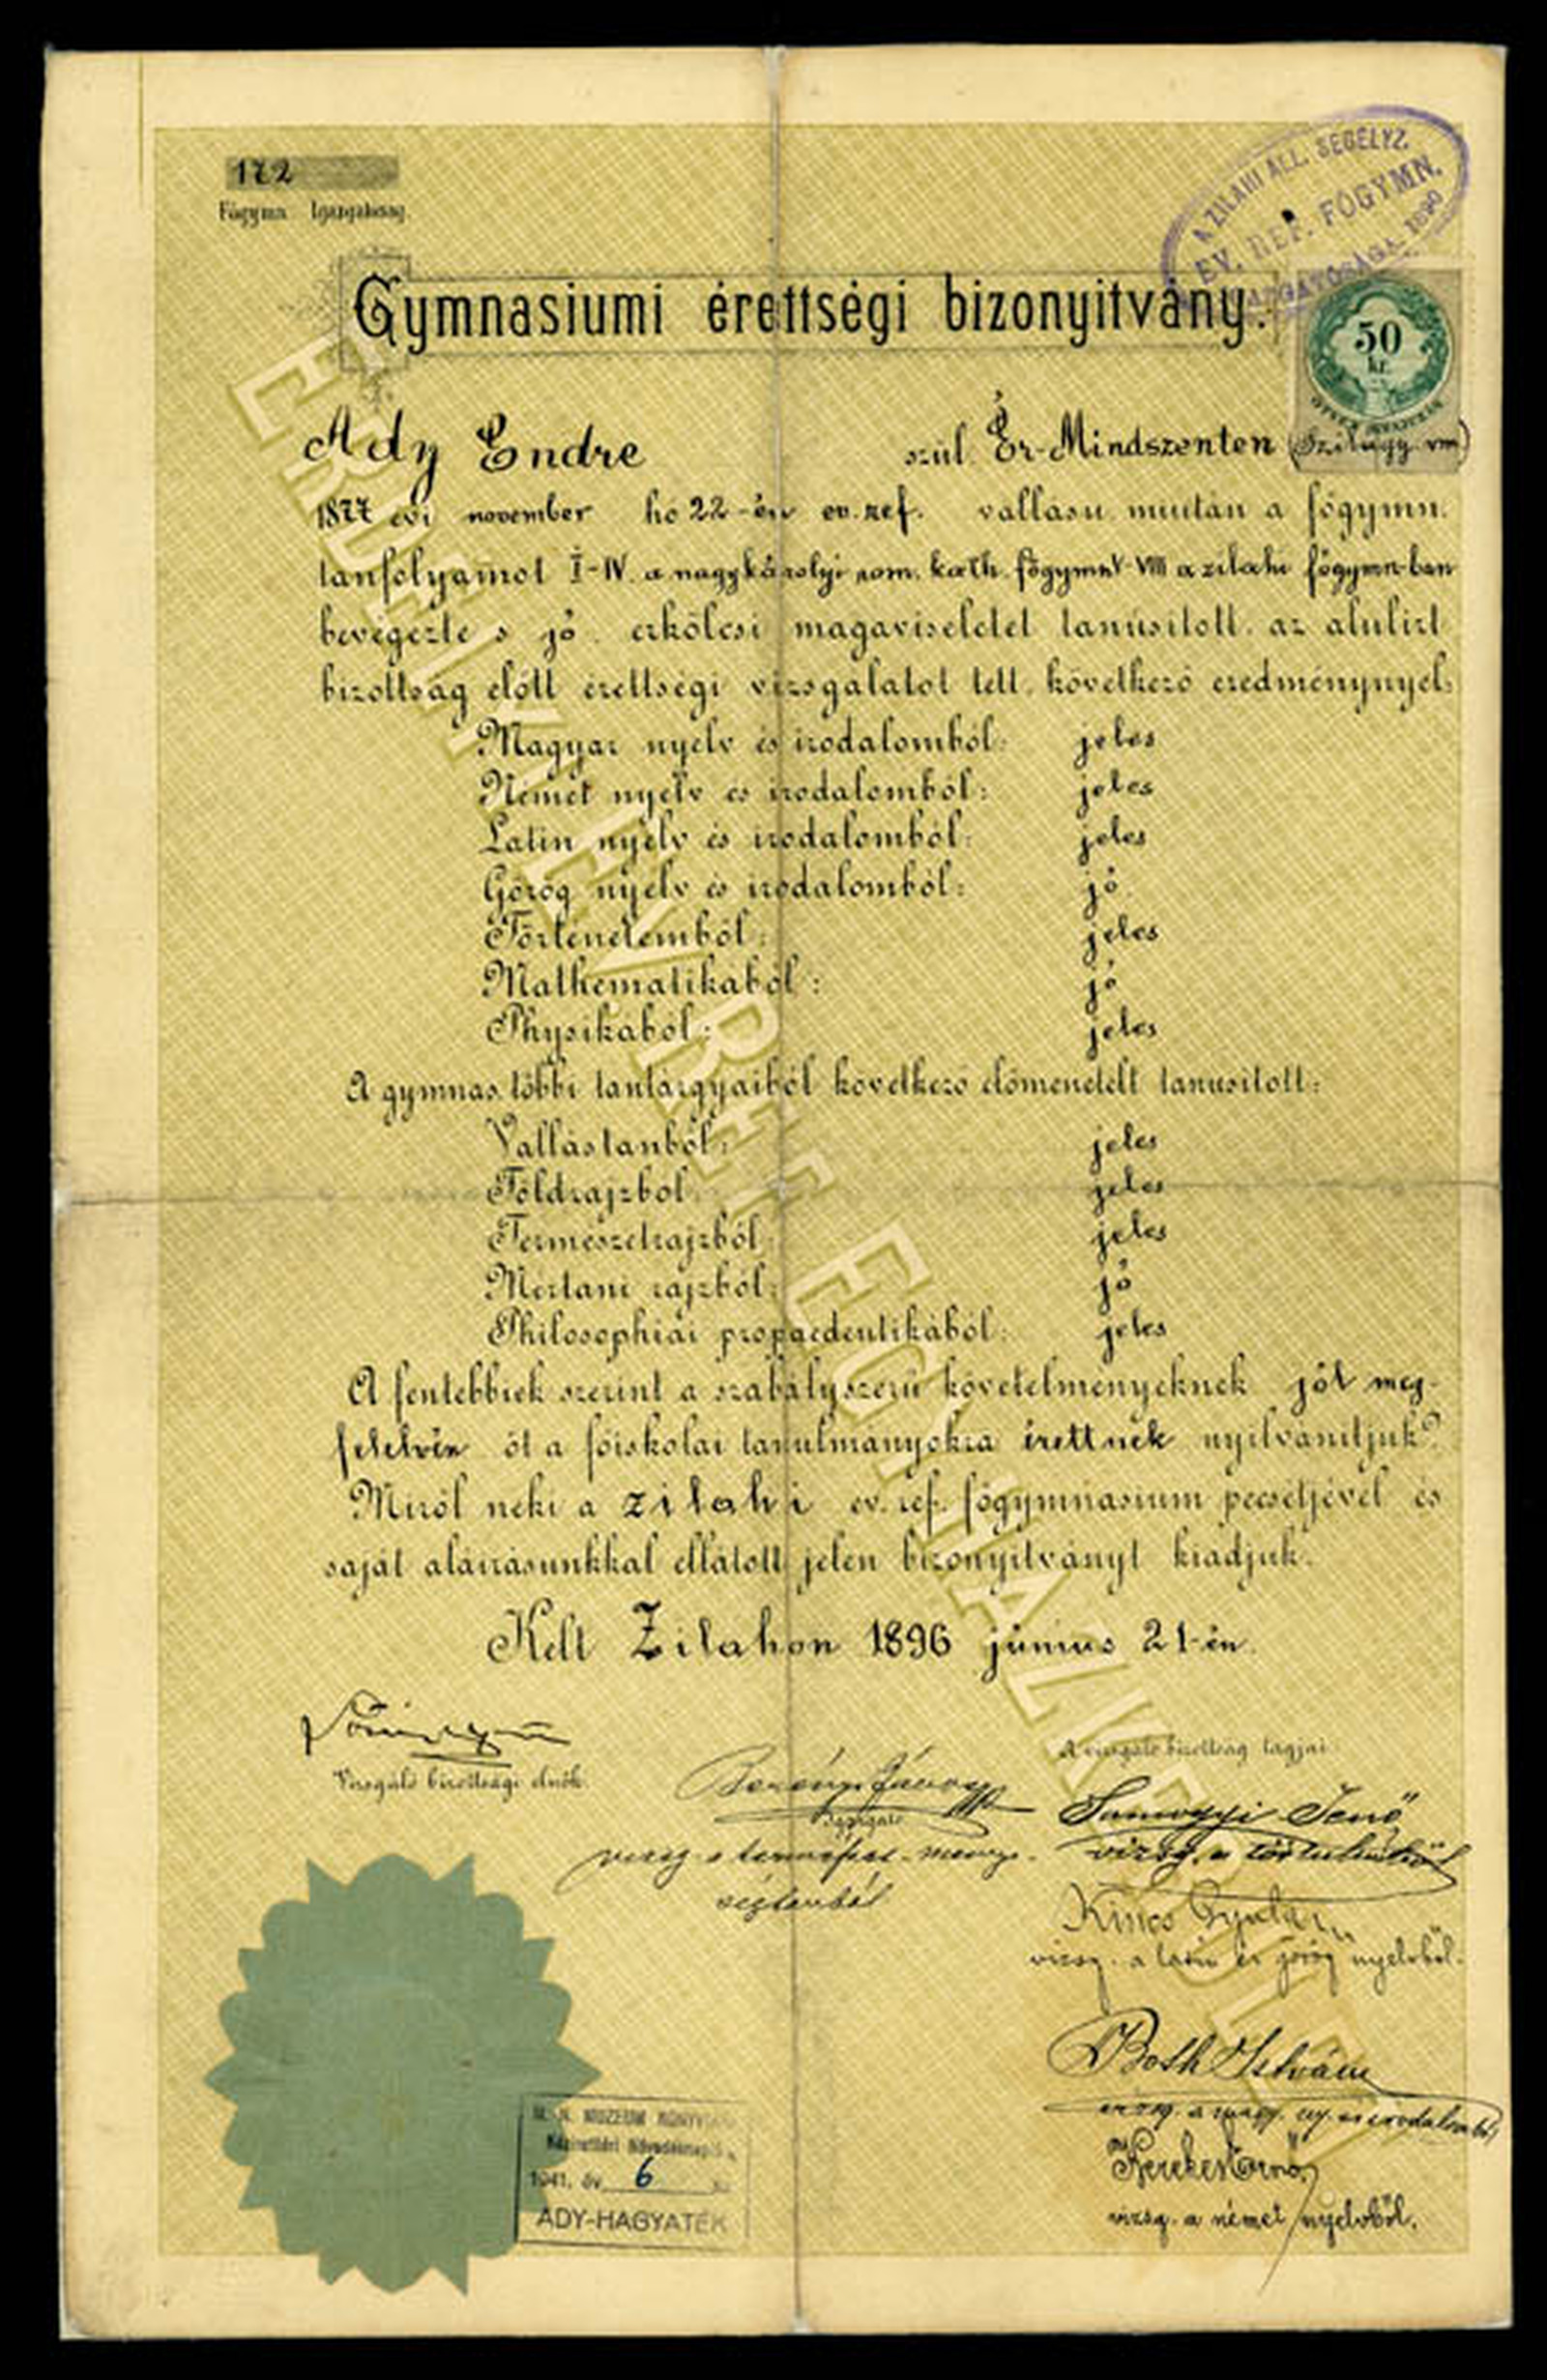 172
Főgymn. Igazgatóság
A ZILAHI ÁLL. SEGÉLYZ.
EV. REF. FŐGYMN.
IGAZGATÓSÁGA. 1890
Gymnasiumi érettségi bizonyitvány.
50
kr.
Ady Endre szül. Ér-Mindszenten (Szilágy vm)
1877 évi november hó 22-én ev. ref. vallásu, miután a főgymn.
tanfolyamot I-IV. a nagykárolyi rom. kath. főgymn V-VIII a zilahi főgymn-ban
bevégezte s jó erkölcsi magaviseletet tanúsított, az alulirt
bizottság előtt érettségi vizsgálatot tett, következő eredménynyel:
Magyar nyelv és irodalomból: jeles
Német nyelv és irodalomból: jeles
Latin nyelv és irodalomból: jeles
Görög nyelv és irodalomból: jó
Történelemből: jeles
Mathematikából: jó
Physikából: jeles
A gymnas. többi tantárgyaiból következő előmenetelt tanusitott:
Vallástanból: jeles
Földrajzból: jeles
Természetrajzból: jeles
Mértani rajzból: jó
Philosophiai propaedeutikából: jeles
A fentebbiek szerint a szabályszerü követelményeknek jól meg-
felelvén őt a főiskolai tanulmányokra érettnek nyilvánítjuk.
Miről neki a zilahi ev. ref. főgymnasium pecsétjével és
saját aláirásunkkal ellátott jelen bizonyitványt kiadjuk.
Kelt Zilahon 1896 június 21-én.
Vizsgáló bizottsági elnök.
A vizsgáló bizottság tagjai:
igazgató
Somogyi Jenő
vizsg. a történelemből
Kincs Gyula
vizsg. a latin és görög nyelvből.
Both István
vizsg. a magy. ny. és irodalomból
Kerekes Ernő,
vizsg. a német nyelvből.
M. N. MÚZEUM KÖNYVTÁRA
Kézirattári Növedéknapló
1941. év 6 sz.
ADY-HAGYATÉK
ERDÉLYI EV. REF. EGYHÁZKERÜLET